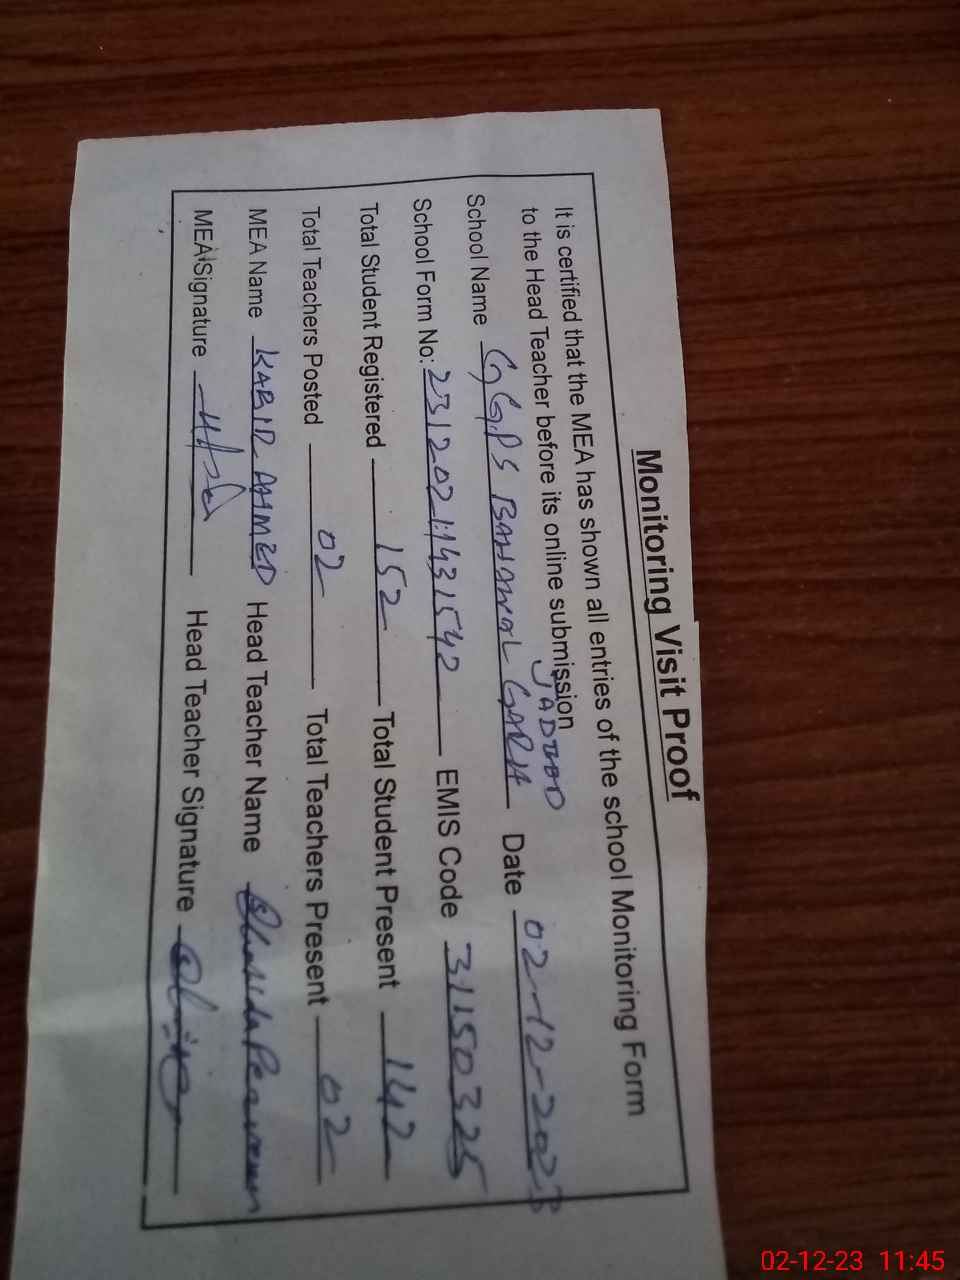 Monitoring Visit Proof
It is certified that the MEA has shown all entries of the school Monitoring Form
to the Head Teacher before its online submission
School Name GGPS BAHAWAL GARH JADEED Date 02-12-2023
School Form No: 2312021431542 EMIS Code 31150325
Total Student Registered 152 Total Student Present 142
Total Teachers Posted 02 Total Teachers Present 02
MEA Name KABIR AHMED Head Teacher Name Parveen
MEA Signature Head Teacher Signature
02-12-23 11:45